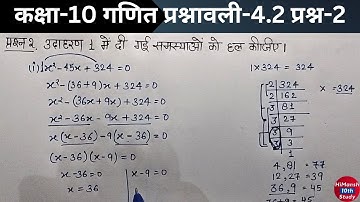 कक्षा-10 गणित प्रश्नावली-4.2 प्रश्न-2
प्रश्न 2. उदाहरण 1 में दी गई समस्याओं को हल कीजिए।
(i) x²-45x+324=0
x²-(36+9)x+324=0
x²-(36x+9x)+324=0
x²-36x-9x+324=0
x(x-36)-9(x-36)=0
(x-36)(x-9)=0
x-36=0
x=36
x-9=0
1×324=324
2 324
2 162
3 81
3 27
3 9
3 3
1
x=324
4,81=77
12,27=39
36,9=45
36+9=45
HiMansh
10th
Study